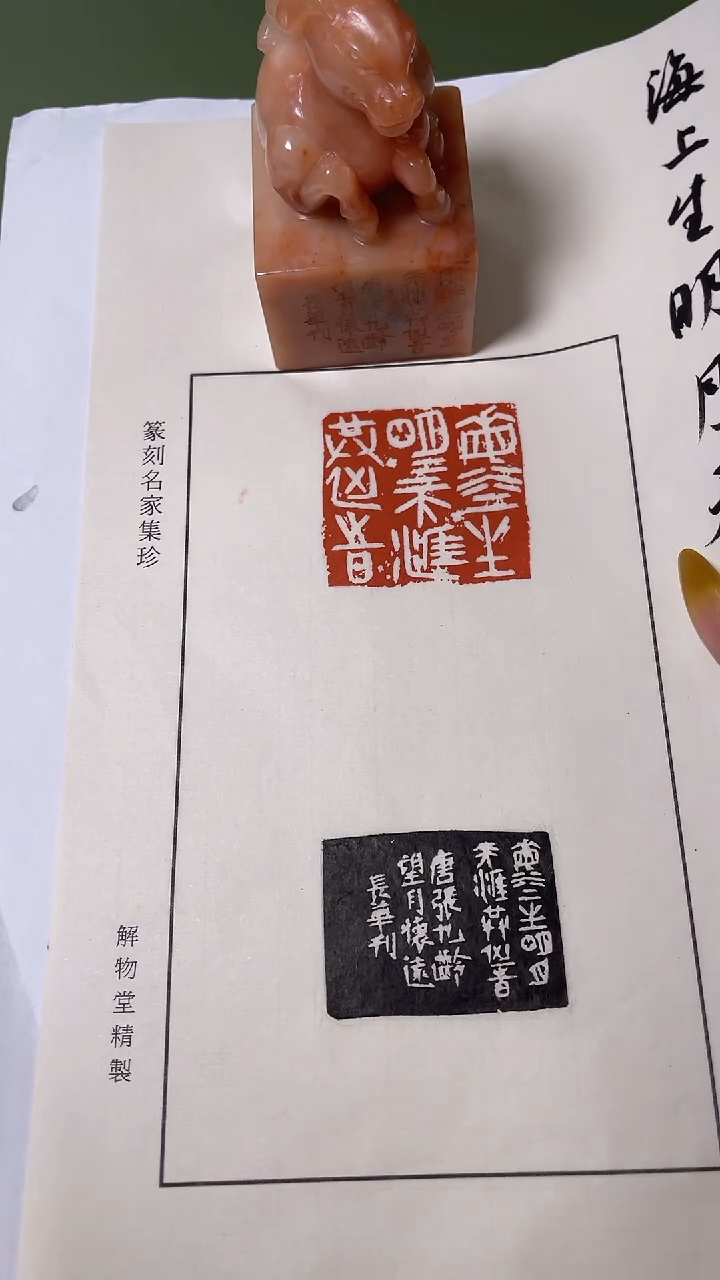 海上生明月
篆刻名家集珍
海上生
明月天涯
共此旹
海上生明月
天涯共此旹
唐張九齡
望月懷遠
長華刊
解物堂精製